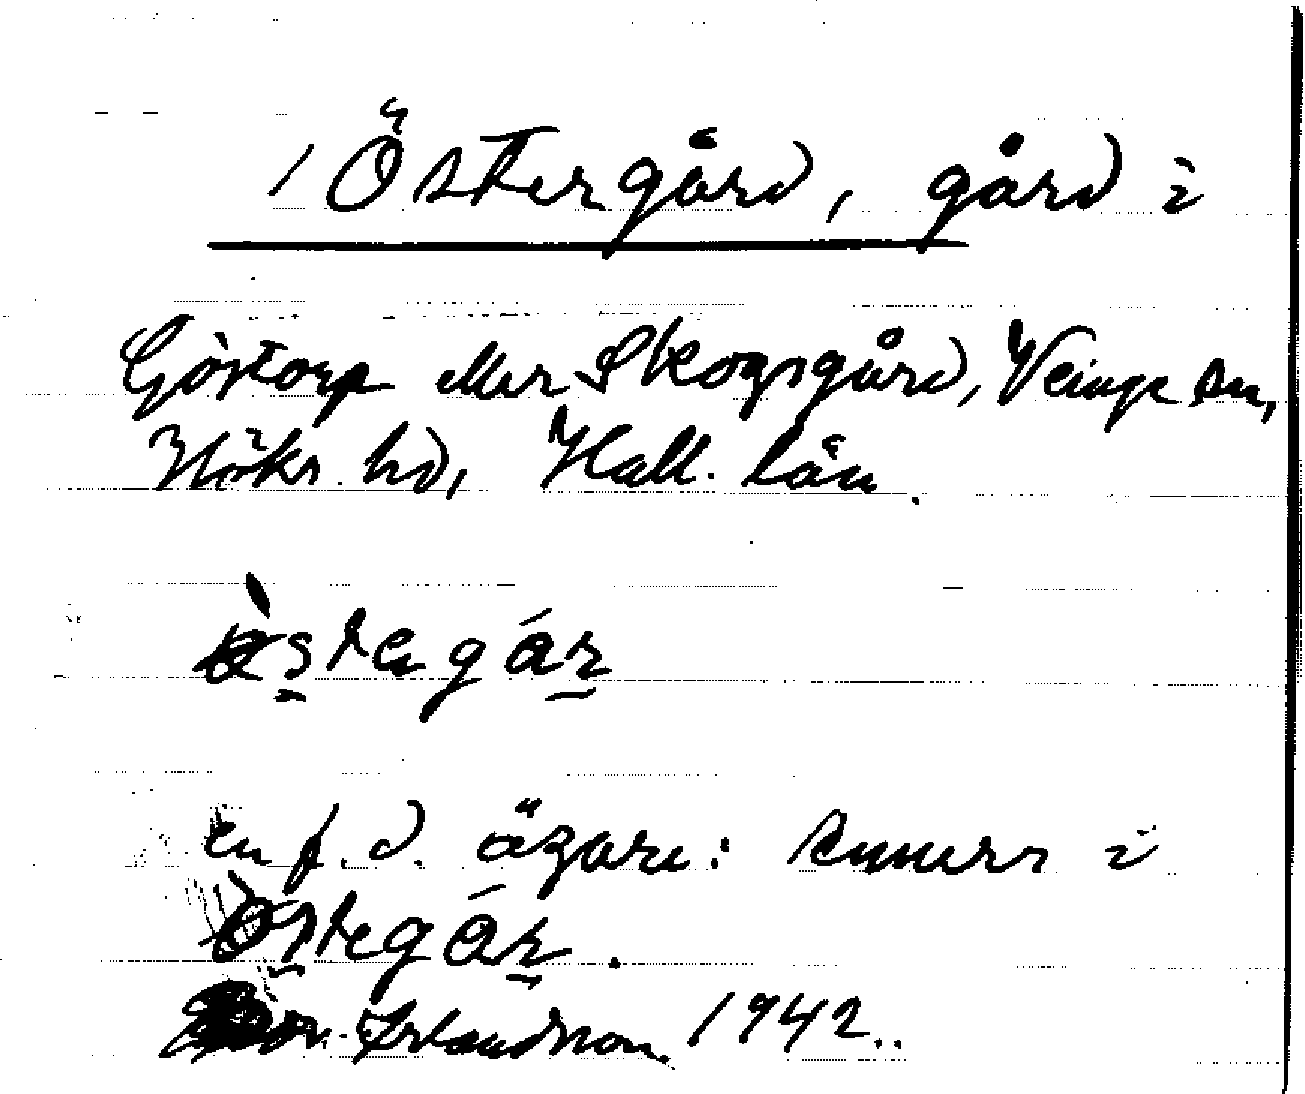 Östergård, gård i
Göstorp eller Skogsgård, Veinge sn,
Höks hd, Hall. län.
østegár
en f.d. ägare: Anners i
Østegár.
Erlandsson 1942.